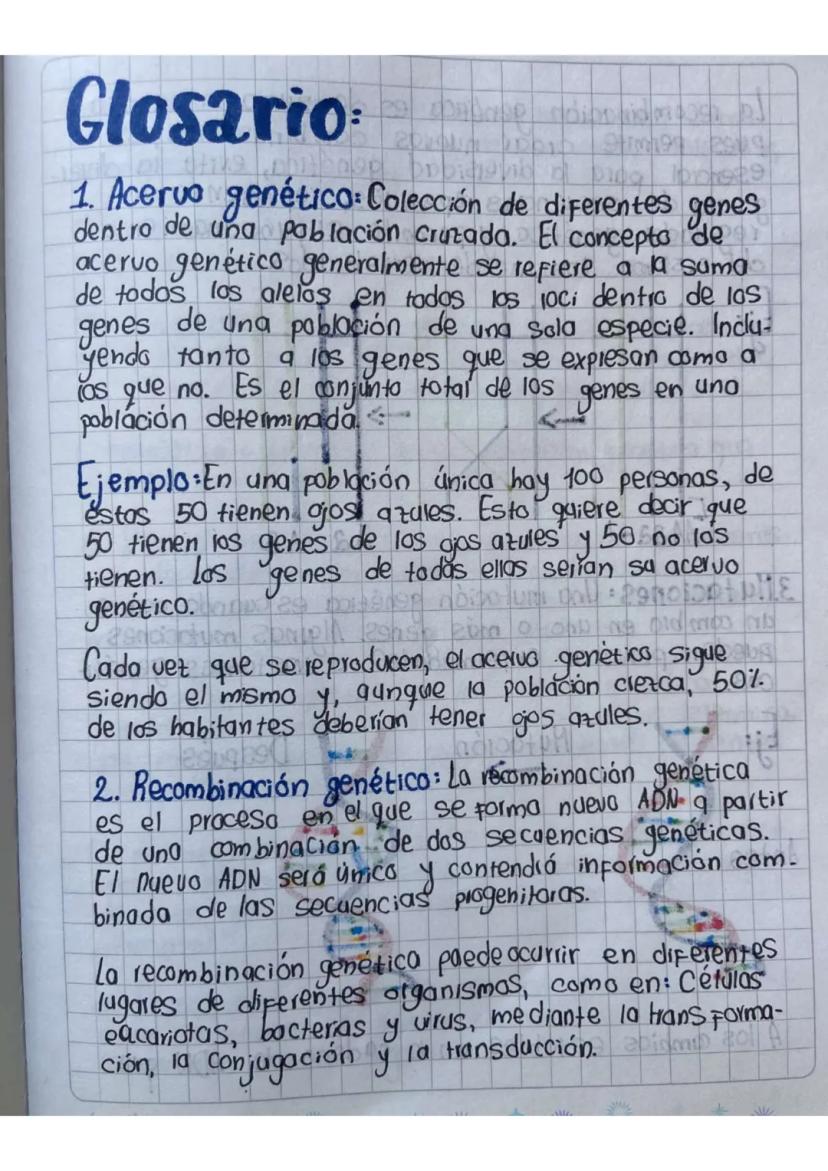 Glosario:
1. Acervo genético: Colección de diferentes genes
dentro de una población cruzada. El concepto de
acervo genético generalmente se refiere a la suma
de todos los alelos en todos los loci dentro de los
genes de una población de una sola especie. Inclu-
yendo tanto a los genes que se expresan como a
los que no. Es el conjunto total de los genes en una
población determinada.
Ejemplo: En una población única hay 100 personas, de
éstas 50 tienen ojos azules. Esto quiere decir que
50 tienen los genes de los ojos azules y 50 no los
tienen. Los genes de todas ellas serían su acervo
genético.
Cada vez que se reproducen, el acervo genético sigue
siendo el mismo y, aunque la población crezca, 50%
de los habitantes deberían tener ojos azules.
2. Recombinación genética: La recombinación genética
es el proceso en el que se forma nuevo ADN a partir
de una combinación de dos secuencias genéticas.
El nuevo ADN será único y contendrá información com-
binada de las secuencias progenitoras.
La recombinación genética puede ocurrir en diferentes
lugares de diferentes organismos, como en: Células
eucariotas, bacterias y virus, mediante la transforma-
ción, la conjugación y la transducción.